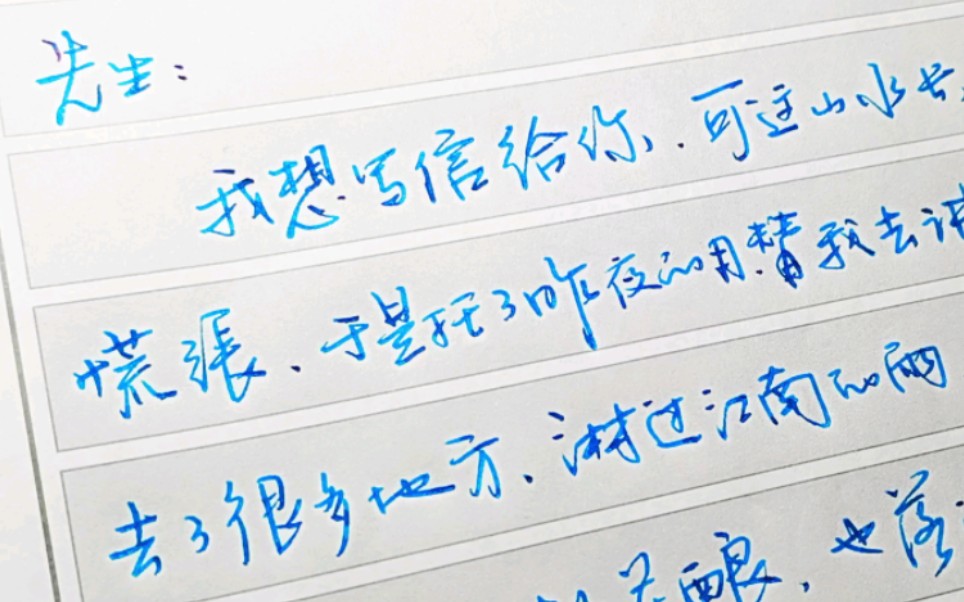 先生:
我想写信给你、可这山水长
慌張、于是托了昨夜的月替我去
去了很多地方、淋过江南的雨
也落